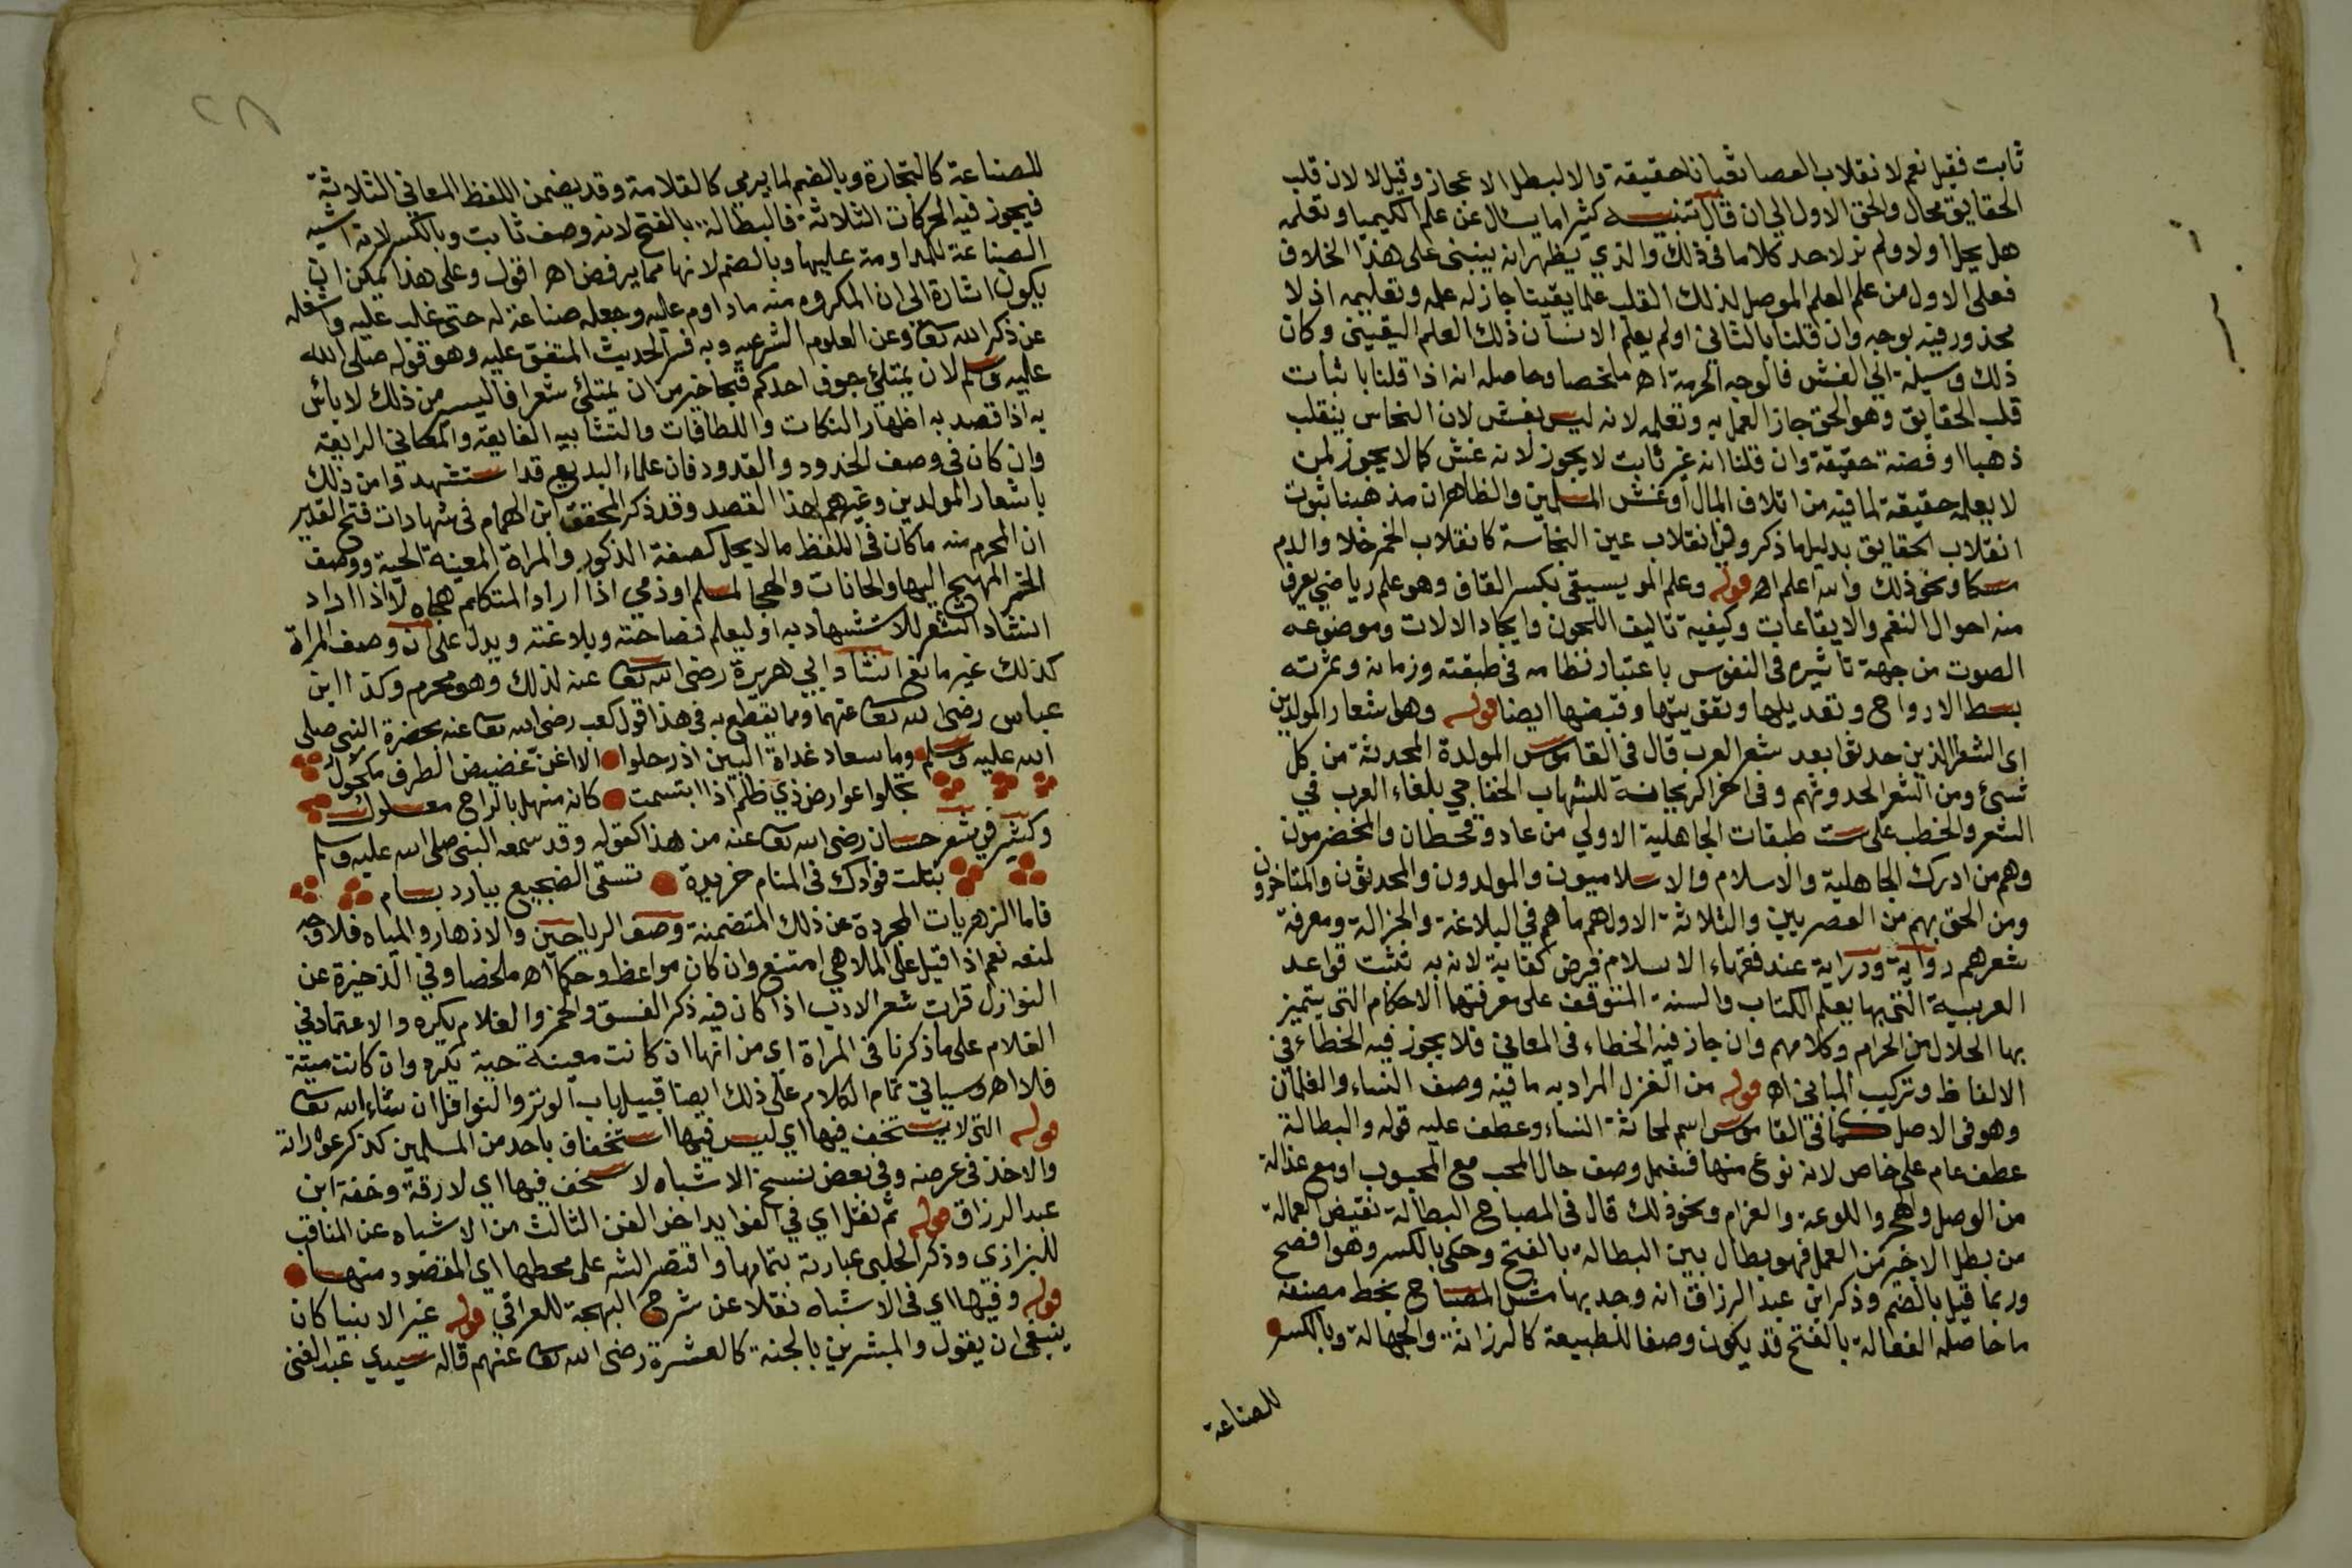 ثابت فقيل نعم لانقلاب العصا ثعبانا حقيقة والا لبطل الاعجاز وقيل لا لان قلب
الحقايق محال والحق الاول الى ان قال تنبيه كثيرا ما يسال عن علم الكيميا وتعلمه
هل يحل اولا ولم نر لاحد كلاما في ذلك والذي يظهر انه ينبني على هذا الخلاف
فعلى الاول من علم العلم الموصل لذلك القلب علما يقينا جاز له علمه وتعليمه اذ لا
محذور فيه بوجه وان قلنا بالثاني او لم يعلم الانسان ذلك العلم اليقيني وكان
ذلك وسيلة الى الغش فالوجه الحرمة اه ملخصا وحاصله انه اذا قلنا باثبات
قلب الحقايق وهو الحق جاز العمل به وتعلمه لانه ليس بغش لان النحاس ينقلب
ذهبا او فضة حقيقة وان قلنا انه غير ثابت لا يجوز لانه غش كما لا يجوز لمن
لا يعلمه حقيقة لما فيه من اتلاف المال او غش المسلمين والظاهر ان مذهبنا ثبوت
انقلاب الحقايق بدليل ما ذكروه في انقلاب عين النجاسة كانقلاب الخمر خلا والدم
مسكا ونحو ذلك والله اعلم اه قوله وعلم الموسيقى بكسر القاف وهو علم رياضي يعرف
منه احوال النغم والايقاعات وكيفية تاليف اللحون وايجاد الالات وموضوعه
الصوت من جهة تاثيره في النفوس باعتبار نظامه في طبقته وزمانه وثمرته
بسط الارواح وتعديلها وتقويتها وقبضها ايضا قوله وهو اشعار المولدين
اى الشعرا الذين حدثوا بعد شعر العرب قال في القاموس المولدة المحدثة من كل
شئ ومن الشعر الحدوثهم وفي اخر الريحانة للشهاب الخفاجي بلغاء العرب في
الشعر والخطب على ست طبقات الجاهلية الاولي من عاد وقحطان والمخضرمون
وهم من ادرك الجاهلية والاسلام والاسلاميون والمولدون والمحدثون والمتاخرون
ومن الحق بهم من العصريين والثلاثة الاول هم ما هم في البلاغة والجزالة ومعرفة
شعرهم رواية ودراية عند فقهاء الاسلام فرض كفاية لانه به تثبت قواعد
العربية التي بها يعلم الكتاب والسنة المتوقف على معرفتهما الاحكام التي يتميز
بها الحلال من الحرام وكلامهم وان جاز فيه الخطاء في المعاني فلا يجوز فيه الخطاء في
الالفاظ وتركيب المباني اه قوله من الغزل المراد به ما فيه وصف النساء والغلمان
وهو في الاصل كما في القاموس اسم لمحادثة النساء وعطف عليه قوله والبطالة
عطف عام على خاص لانه نوع منها فيشمل وصف حال المحب مع المحبوب او مع عذاله
من الوصل والهجر واللوعة والغرام ونحو ذلك قال في المصباح البطالة نقيض العمالة
من بطل الاجير من العمل فهو بطال بين البطالة بالفتح وحكى بالكسر وهو افصح
وربما قيل بالضم وذكر ابن عبد الرزاق انه وجد بهامش المصباح بخط مصنفه
ما حاصله الفعالة بالفتح قد يكون وصفا للطبيعة كالرزانة والجهالة وبالكسر
للصناعة
٢٨
للصناعة كالتجارة وبالضم لما يرمي كالقلامة وقد يضمن اللفظ المعاني الثلاثة
فيجوز فيه الحركات الثلاثة فالبطالة بالفتح لانه وصف ثابت وبالكسر لانه اشبه
الصناعة للمداومة عليها وبالضم لانها مما يرفض اه اقول وعلى هذا يمكن ان
يكون اشارة الى ان المكروه منه ما داوم عليه وجعله صناعة له حتى غلب عليه واشغله
عن ذكر الله تعا وعن العلوم الشرعيه وبه فسر الحديث المتفق عليه وهو قوله صلى الله
عليه وسلم لان يمتلئ جوف احدكم قيحا خير من ان يمتلئ شعرا فاليسير من ذلك لا باس
به اذا قصد به اظهار النكات واللطافات والتشابيه الفايقة والمعاني الرايقة
وان كان في وصف الخدود والقدود فان علماء البديع قد استشهدوا من ذلك
باشعار المولدين وغيرهم لهذا القصد وقد ذكر المحقق ابن الهمام في شهادات فتح القدير
ان المحرم منه ما كان في اللفظ ما لا يحل كصفة الذكور والمراة المعينة الحية ووصف
الخمر المهيج اليها والحانات والهجا لمسلم او ذمي اذا اراد المتكلم هجاه لا اذا اراد
انشاد الشعر للاستشهاد به او ليعلم فصاحته وبلاغته ويدل على ان وصف المراة
كذلك غير مانع انشاد ابي هريرة رضى الله تعا عنه لذلك وهو محرم وكذا ابن
عباس رضى الله تعا عنهما ومما يقطع به في هذا قول كعب رضى الله تعا عنه بحضرة النبي صلى
الله عليه وسلم وما سعاد غداة البين اذ رحلوا الا اغن غضيض الطرف مكحول
تجلوا عوارض ذي ظلم اذا ابتسمت كانه منهل بالراح معلول
وكثير في شعر حسان رضى الله تعا عنه من هذا كقوله وقد سمعه النبي صلى الله عليه وسلم
تبلت فؤادك في المنام خريدة تسقى الضجيع ببارد بسام
فاما الزهريات المجردة عن ذلك المتضمنة وصف الرياحين والازهار والمياه فلا وجه
لمنعه نعم اذا قيل على الملاهي امتنع وان كان مواعظ وحكما اه ملخصا وفي الذخيرة عن
النوازل قراة شعر الادب اذا كان فيه ذكر الفسق والخمر والغلام يكره والاعتماد في
الغلام على ما ذكرنا في المراة اي من انها ان كانت معينة حية يكره وان كانت ميتة
فلا اه وسياتي تمام الكلام على ذلك ايضا قبيل باب الوتر والنوافل ان شاء الله تعا
قوله التى لا يستخف فيها اي ليس فيها استخفاف باحد من المسلمين كذكر عوراته
والاخذ في عرضه وفي بعض نسخ الاشباه لا سخف فيها اي لا رقة وخفة ابن
عبد الرزاق قوله ثم نقل اي في الفوايد اخر الفن الثالث من الاشباه عن المناقب
للبزازي وذكر الحلبي عبارته بتمامها واقتصر الشه على محطها اي المقصود منها
قوله وفيها اي في الاشباه نقلا عن شرح البهجة للعراقي قوله غير الانبيا كان
ينبغى ان يقول والمبشرين بالجنة كالعشرة رضى الله تعا عنهم قاله سيدي عبد الغنى